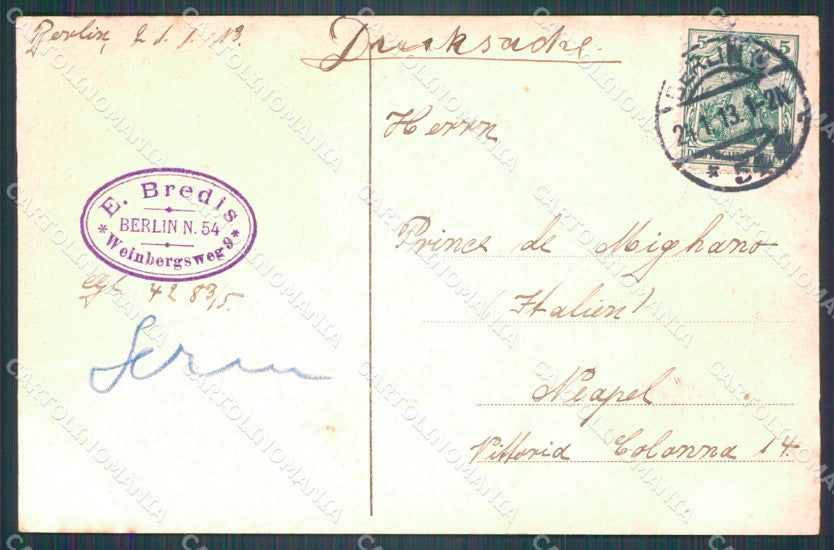 Berlin, 21.1.13.
Drucksache.
5 5
BERLIN
24.1.13.1-2N.
* 54
Herrn
E. Bredis
BERLIN N. 54
* Weinbergsweg 9 *
Prince de Mighano
(Italien)
42 83/5.
Neapel
Vittoria Colonna 14.
CARTOLINOMANIA